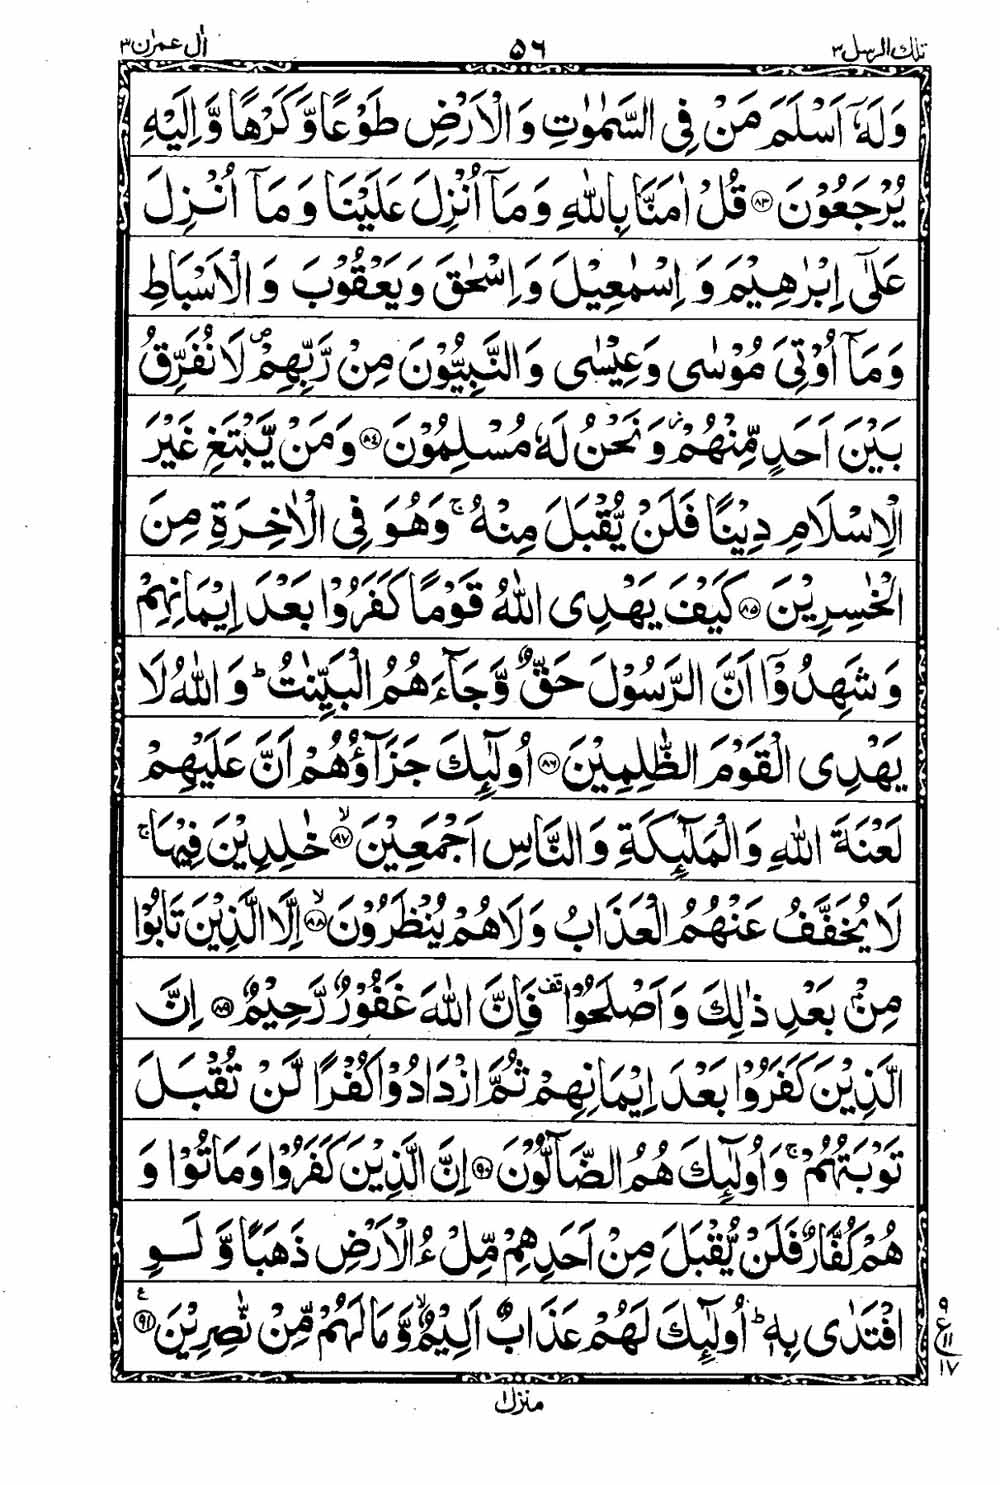 تلك الرسل ٣ ۵۶ اٰل عمرٰن ٣
وَلَهٗۤ اَسْلَمَ مَنْ فِی السَّمٰوٰتِ وَ الْاَرْضِ طَوْعًا وَّ كَرْهًا وَّ اِلَیْهِ
یُرْجَعُوْنَ ﴿۸۳﴾ قُلْ اٰمَنَّا بِاللّٰهِ وَ مَاۤ اُنْزِلَ عَلَیْنَا وَ مَاۤ اُنْزِلَ
عَلٰۤی اِبْرٰهِیْمَ وَ اِسْمٰعِیْلَ وَ اِسْحٰقَ وَ یَعْقُوْبَ وَ الْاَسْبَاطِ
وَ مَاۤ اُوْتِیَ مُوْسٰی وَ عِیْسٰی وَ النَّبِیُّوْنَ مِنْ رَّبِّهِمْ ۪ لَا نُفَرِّقُ
بَیْنَ اَحَدٍ مِّنْهُمْ ؗ وَ نَحْنُ لَهٗ مُسْلِمُوْنَ ﴿۸۴﴾ وَ مَنْ یَّبْتَغِ غَیْرَ
الْاِسْلَامِ دِیْنًا فَلَنْ یُّقْبَلَ مِنْهُ ۚ وَ هُوَ فِی الْاٰخِرَةِ مِنَ
الْخٰسِرِیْنَ ﴿۸۵﴾ كَیْفَ یَهْدِی اللّٰهُ قَوْمًا كَفَرُوْا بَعْدَ اِیْمَانِهِمْ
وَ شَهِدُوْۤا اَنَّ الرَّسُوْلَ حَقٌّ وَّ جَآءَهُمُ الْبَیِّنٰتُ ؕ وَ اللّٰهُ لَا
یَهْدِی الْقَوْمَ الظّٰلِمِیْنَ ﴿۸۶﴾ اُولٰٓىِٕكَ جَزَآؤُهُمْ اَنَّ عَلَیْهِمْ
لَعْنَةَ اللّٰهِ وَ الْمَلٰٓىِٕكَةِ وَ النَّاسِ اَجْمَعِیْنَ ﴿ۙ۸۷﴾ خٰلِدِیْنَ فِیْهَا ۚ
لَا یُخَفَّفُ عَنْهُمُ الْعَذَابُ وَ لَا هُمْ یُنْظَرُوْنَ ﴿ۙ۸۸﴾ اِلَّا الَّذِیْنَ تَابُوْا
مِنْۢ بَعْدِ ذٰلِكَ وَ اَصْلَحُوْا قف فَاِنَّ اللّٰهَ غَفُوْرٌ رَّحِیْمٌ ﴿۸۹﴾ اِنَّ
الَّذِیْنَ كَفَرُوْا بَعْدَ اِیْمَانِهِمْ ثُمَّ ازْدَادُوْا كُفْرًا لَّنْ تُقْبَلَ
تَوْبَتُهُمْ ۚ وَ اُولٰٓىِٕكَ هُمُ الضَّآلُّوْنَ ﴿۹۰﴾ اِنَّ الَّذِیْنَ كَفَرُوْا وَ مَاتُوْا وَ
هُمْ كُفَّارٌ فَلَنْ یُّقْبَلَ مِنْ اَحَدِهِمْ مِّلْءُ الْاَرْضِ ذَهَبًا وَّ لَوِ
افْتَدٰی بِهٖ ؕ اُولٰٓىِٕكَ لَهُمْ عَذَابٌ اَلِیْمٌ ۙ وَّ مَا لَهُمْ مِّنْ نّٰصِرِیْنَ ﴿۹۱﴾ ع
۹
ع ۱۱
۱۷
منزل ۱